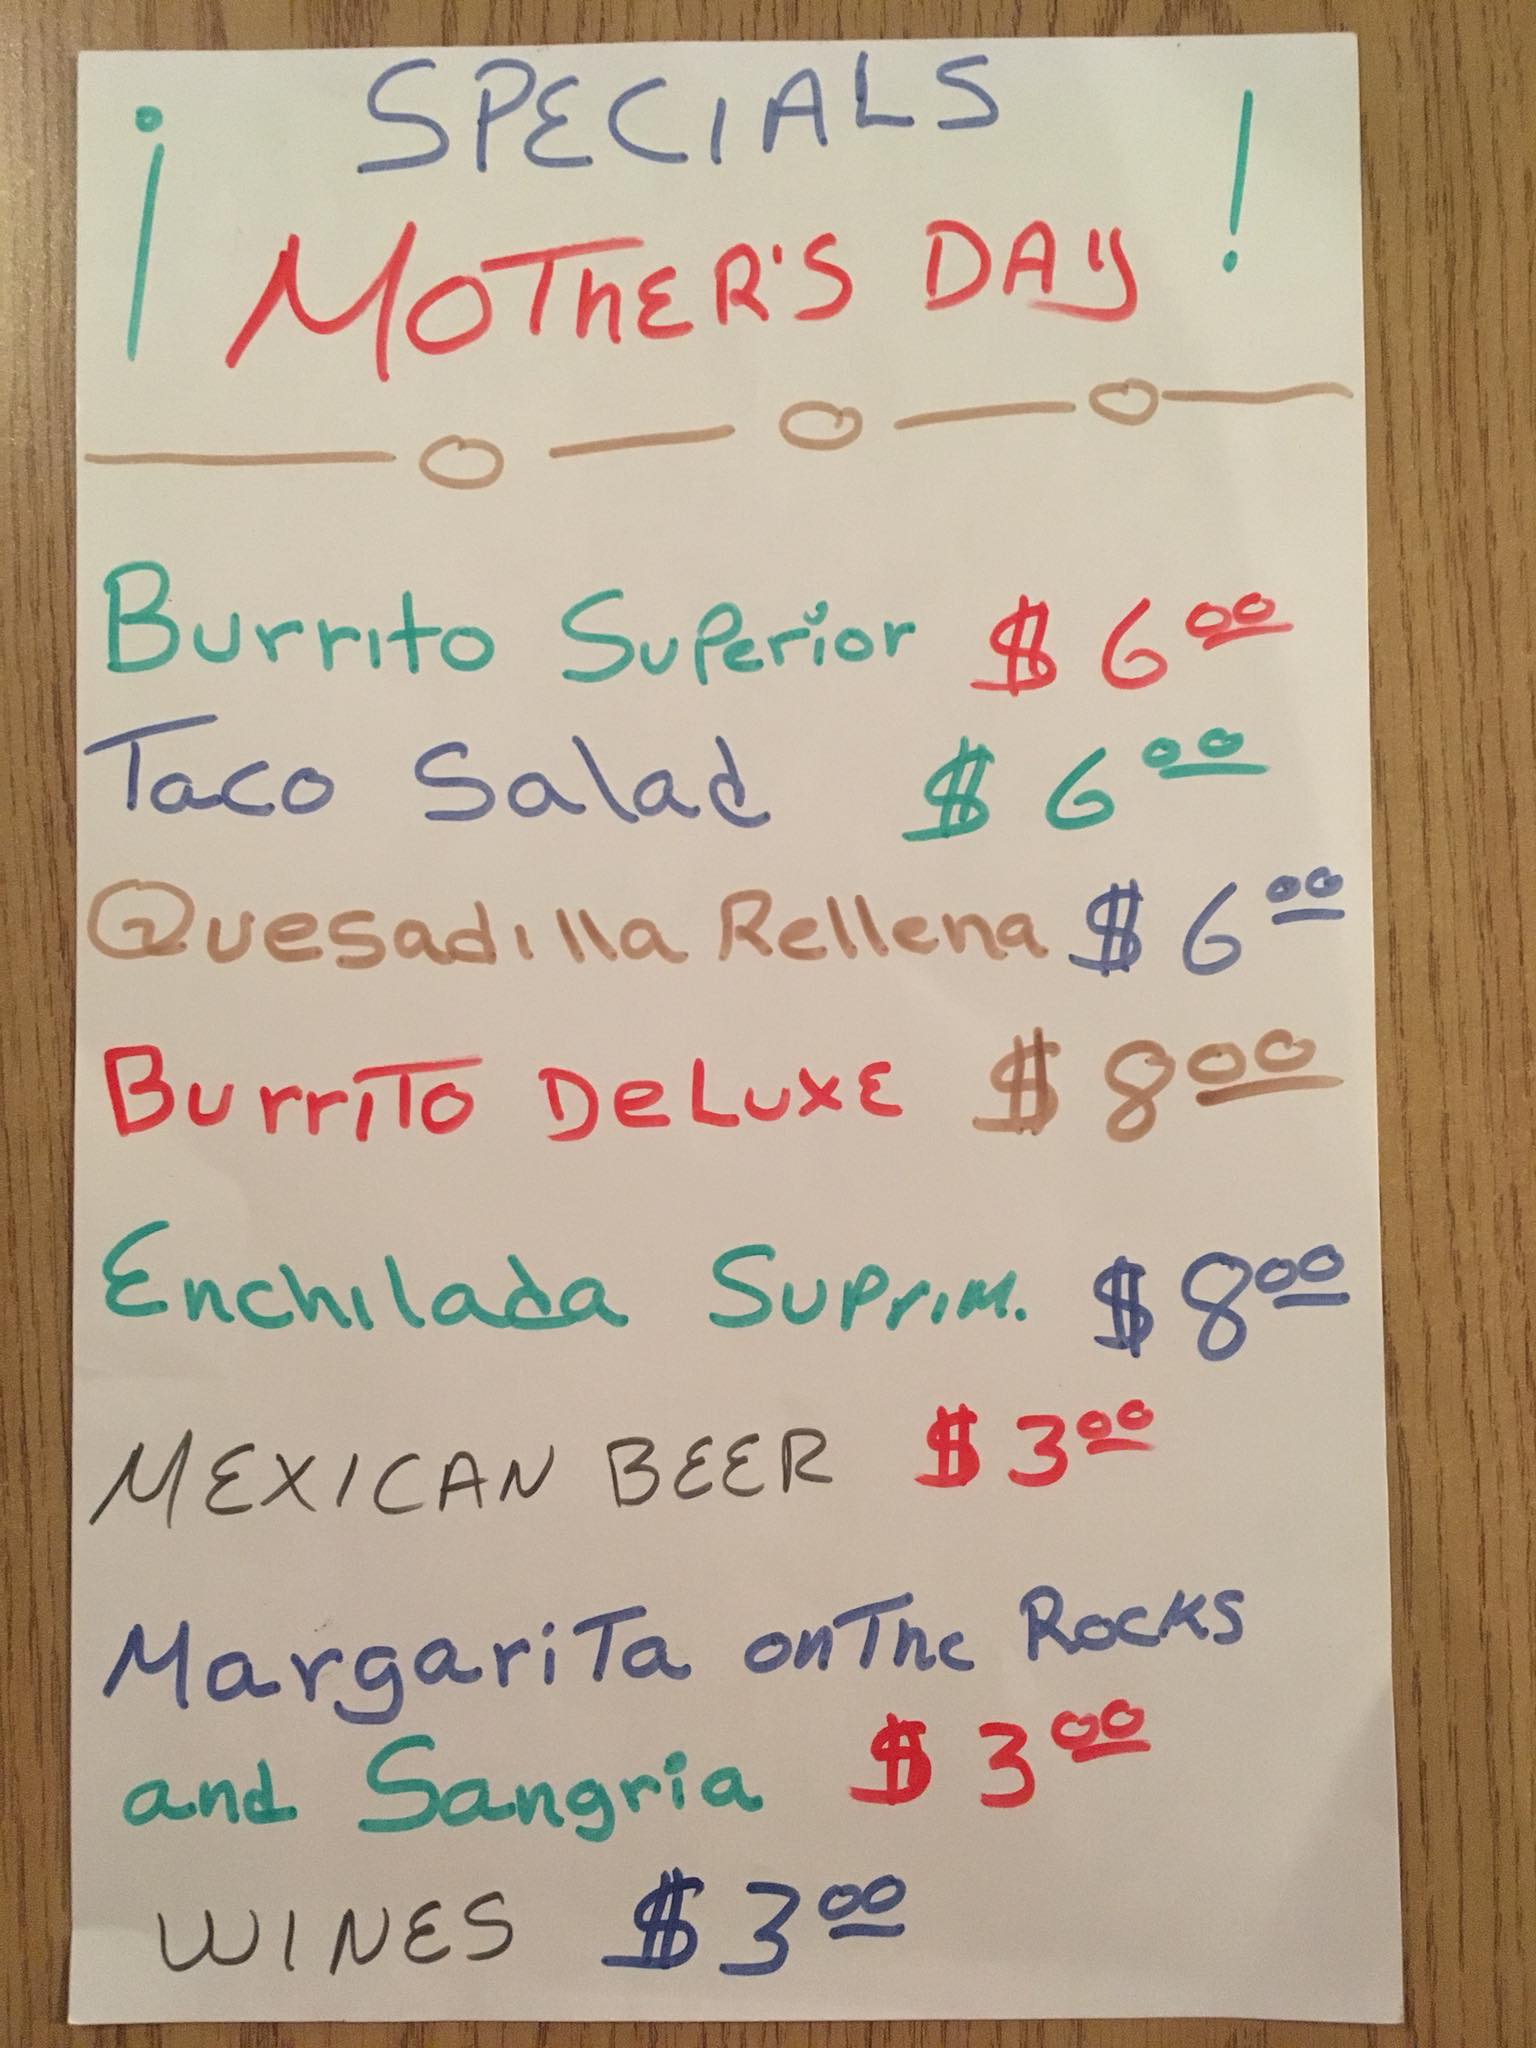 SPECIALS
¡ MOTHER'S DAY !
Burrito Superior $ 6.00
Taco Salad $ 6.00
Quesadilla Rellena $ 6.00
Burrito DeLuxe $ 8.00
Enchilada Suprim. $ 8.00
MEXICAN BEER $ 3.00
Margarita on The Rocks
and Sangria $ 3.00
WINES $ 3.00